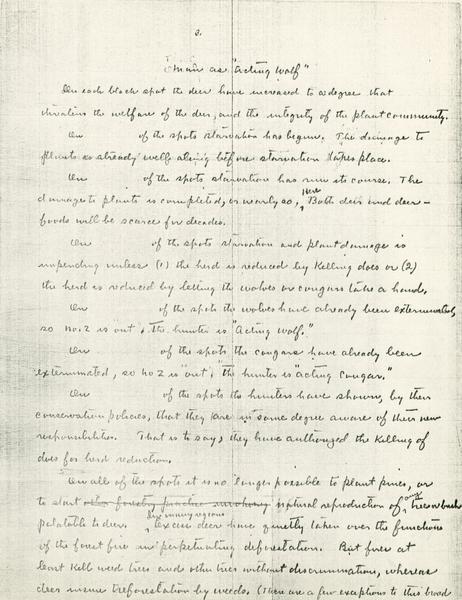 2.
Man as "Acting Wolf"
On each black spot the deer have increased to a degree that
threatens the welfare of the deer, and the integrity of the plant community.
On of the spots starvation has begun. The damage to
plants is already well along before starvation takes place.
On of the spots starvation has run its course. The
damage to plants is completed, or nearly so, Here Both deer and deer-
foods will be scarce for decades.
On of the spots starvation and plant damage is
impending unless (1) the herd is reduced by killing does or (2)
the herd is reduced by letting the wolves or cougars take a hand.
On of the spots the wolves have already been exterminated,
so no. 2 is out; the hunter is "acting wolf."
On of the spots the cougars have already been
exterminated, so no 2 is "out"; "the hunter is "acting Cougar."
On of the spots the hunters have shown, by their
conservation policies, that they are in some degree aware of their new
responsibilities. That is to say, they have authorized the killing of
does for herd reduction.
On all of the spots it is no longer possible to plant pines, or
to start other forestry practice involving natural reproduction of any tree or bush
palatable to deer. In many regions excess deer have quietly taken over the functions
of the forest fire in perpetuating deforestation. But fires at
least kill weed trees and other trees without discrimination, whereas
deer insure reforestation by weeds. (There are a few exceptions to this broad